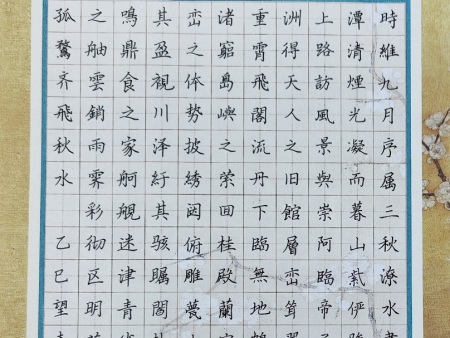 時維九月序属三秋潦水
潭清煙光凝而暮山紫俨
上路訪風景與崇阿臨帝子
洲得天人之旧館層峦耸
重霄飛閣流丹下臨無地鶴
渚窮島嶼之萦回桂殿蘭
峦之体势披绣闼俯雕甍
其盈視川泽紆其骇矚閭
鳴鼎食之家舸舰迷津青
之舳雲銷雨霁彩彻区明
孤鶩齐飛秋水 乙巳望